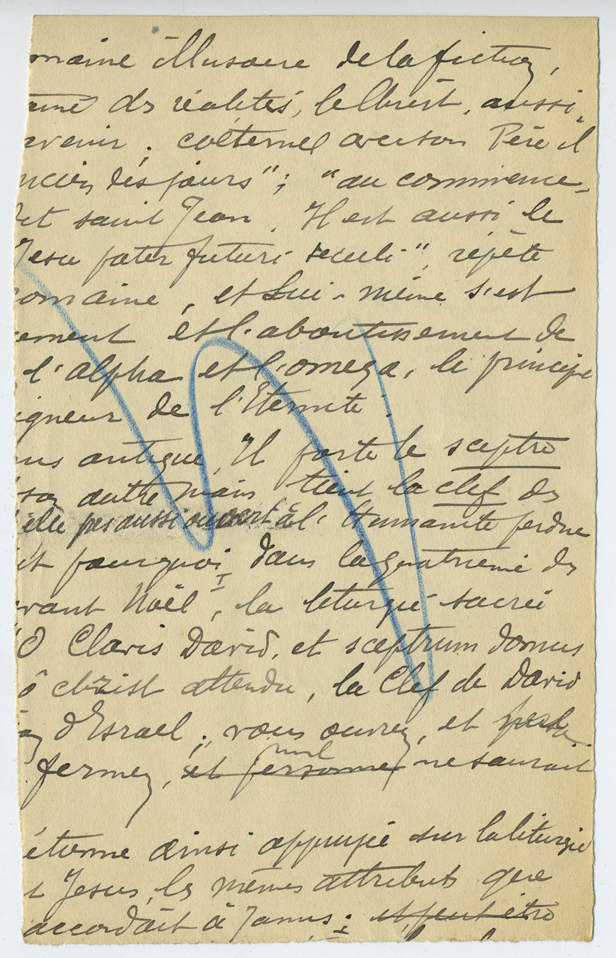 maine illusoire de la fiction,
des réalités, le Christ, aussi,
avenir. coéternel avec son Père il
ncien des jours"; "au commence-
dit saint Jean. Il est aussi le
Jesu pater futuri seculi", répète
omaine, et Lui-même s'est
cement et l'aboutissement de
l'alpha et l'omega, le principe
igneur de l'Eternité.
us antique, Il porte le sceptre
son autre main tient la clef des
elle pas aussi ouvert à l'Humanité perdue
it pourquoi, dans la quatrième des
avant Noël, la liturgie sacrée
"O Clavis David, et sceptrum domus
ô christ attendu, la Clef de David
d'Israel; vous ouvrez, et
nul
fermez, et personne ne saurait
étienne ainsi appuyée sur la liturgie
t Jesus, les mêmes attributs que
accordait à Janus: et peut être